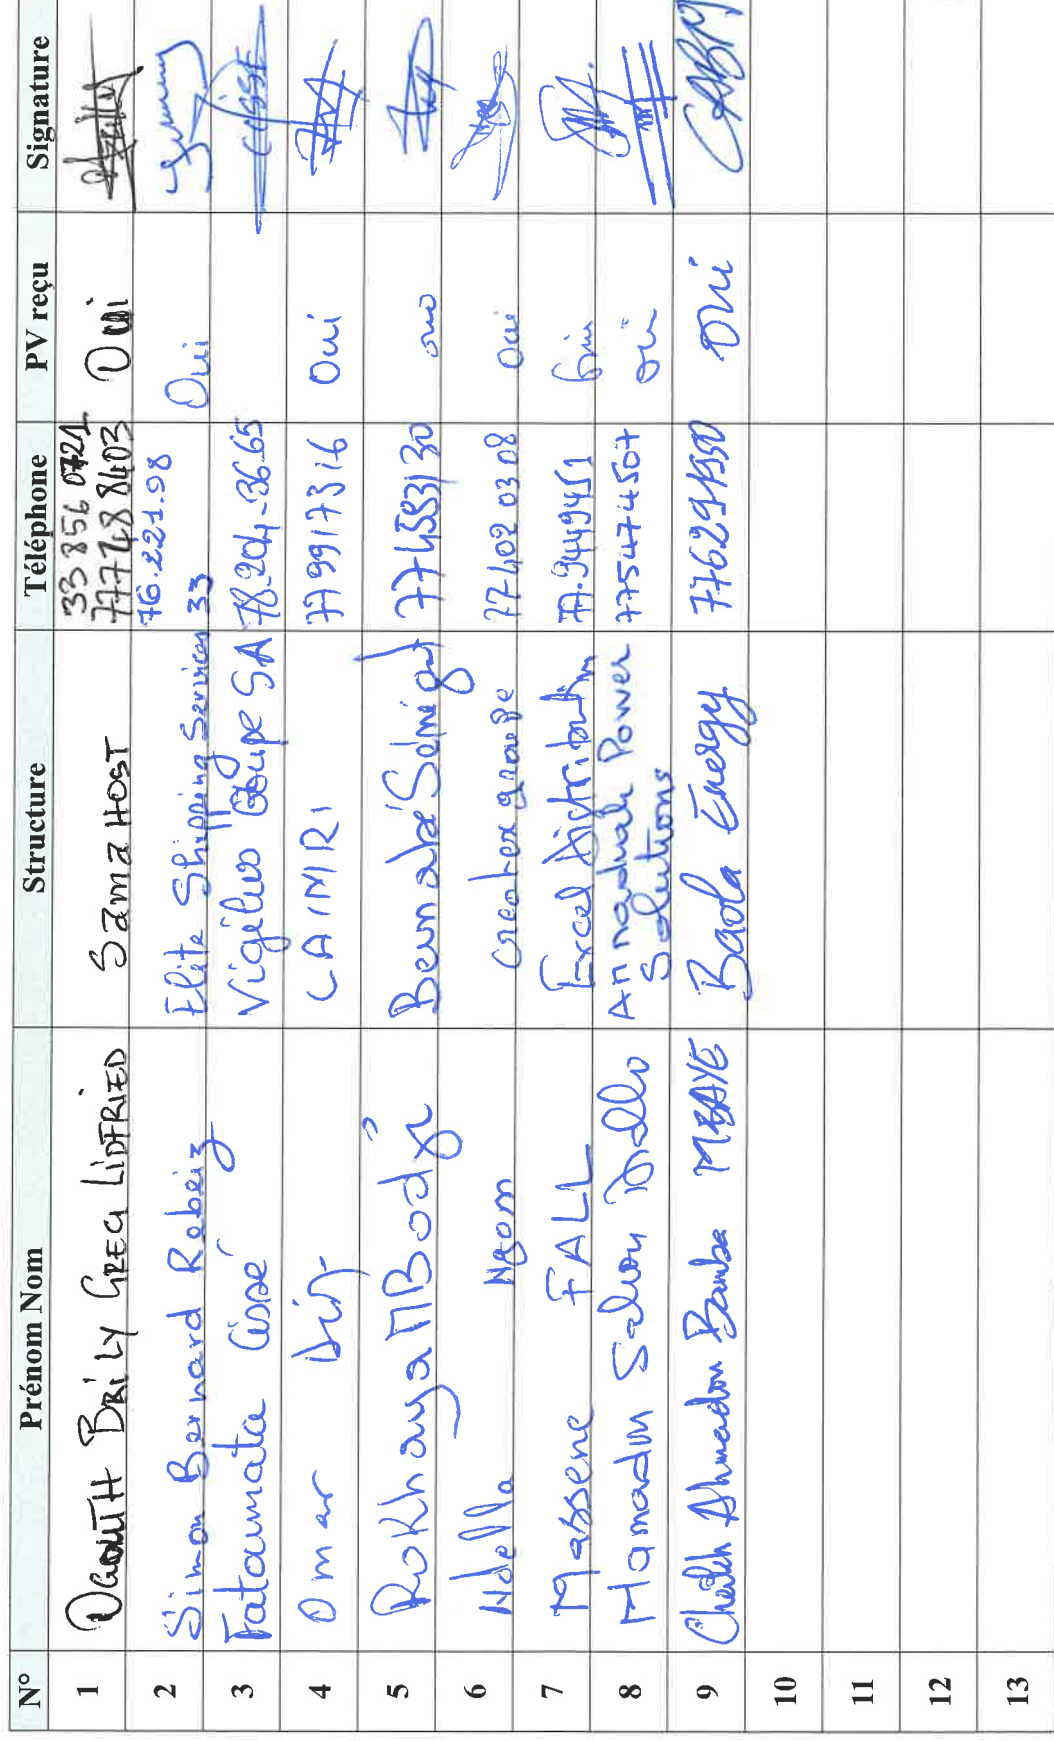 N° Prénom Nom Structure Téléphone PV reçu Signature
1 BRILY GREG LIDFRIED SamaHOST 33 856 0721 Oui
77748 8403
2 Simon Bernard Robeiz Elite Shipping Services 76.221.98 Oui
33
3 Fatoumata Cissé Vigilus Groupe SA 78.204-36.65 CISSE
4 Omar CAIMRI 77 9917316 Oui
5 Rokhaya MBodji Bernabé Sénégal 774583130
6 Ndella Ngom groupe 77402 03 08 Oui
7 Massene FALL Excel Distribution 77.9449451
8 Mamadou Saliou Diallo Annadhah Power 775474507 oui
Solutions
9 Cheikh Ahmadou Bamba MBAYE Baola Energy Oui
10
11
12
13